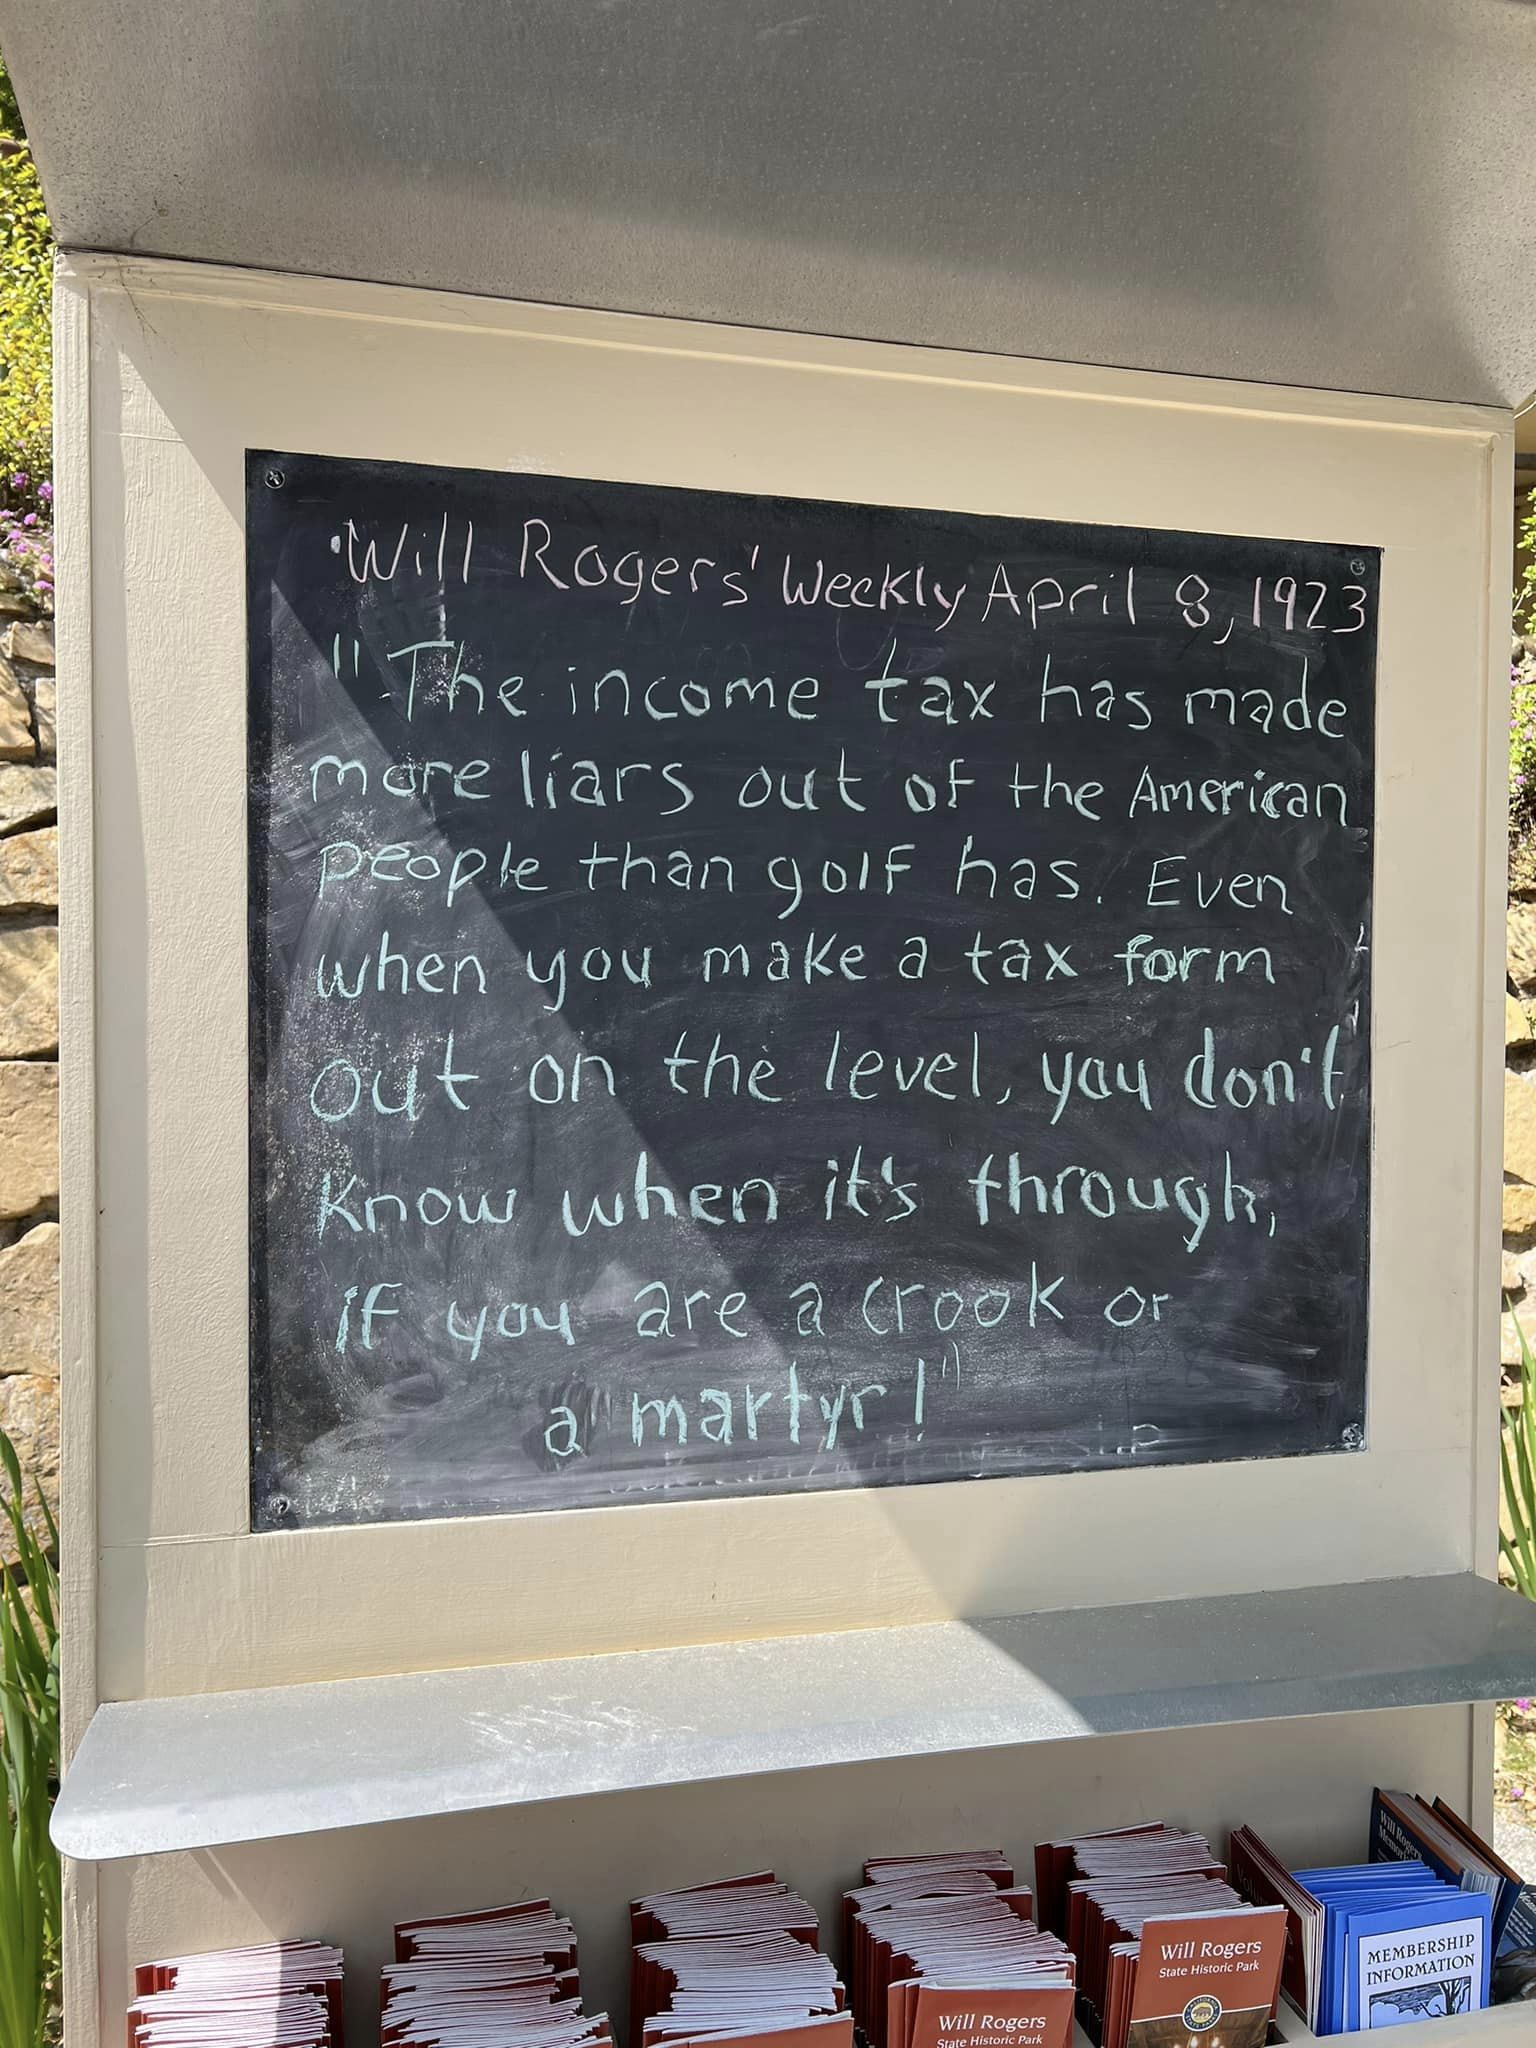 Will Rogers' Weekly April 8, 1923
"The income tax has made
more liars out of the American
people than golf has. Even
when you make a tax form
out on the level, you don't
know when it's through,
if you are a crook or
a martyr!"
Will Rogers
State Historic Park
Will Rogers
State Historic Park
MEMBERSHIP
INFORMATION
Will Rogers